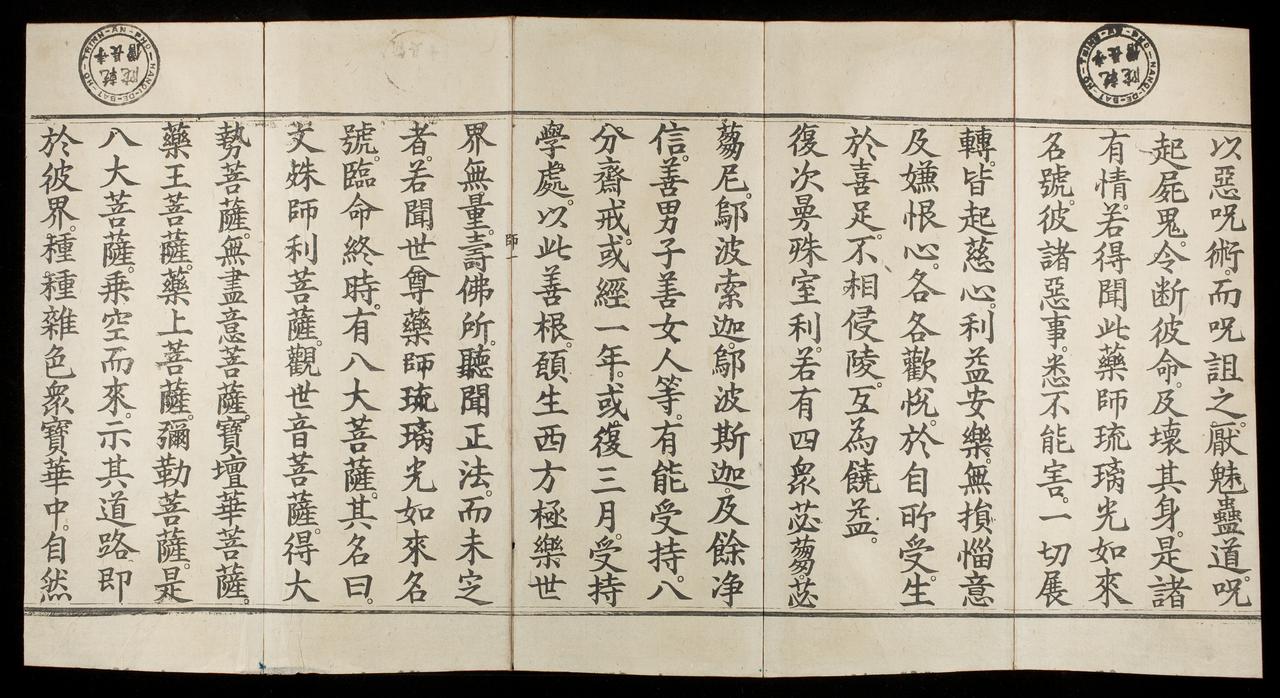 以惡呪術。而呪詛之。厭魅蠱道。呪
起屍鬼。令断彼命。及壞其身。是諸
有情。若得聞此藥師琉璃光如來
名號。彼諸惡事。悉不能害。一切展
轉。皆起慈心。利益安樂。無損惱意
及嫌恨心。各各歡悅。於自所受。生
於喜足。不相侵陵。互為饒益。
復次曼殊室利。若有四眾苾蒭。苾
蒭尼。鄔波索迦。鄔波斯迦。及餘净
信。善男子善女人等。有能受持。八
分齋戒。或經一年。或復三月。受持
師一
學處。以此善根。願生西方極樂世
界無量壽佛所。聽聞正法。而未定
者。若聞世尊藥師琉璃光如來名
號。臨命終時。有八大菩薩。其名曰。
文殊師利菩薩。觀世音菩薩。得大
勢菩薩。無盡意菩薩。寶壇華菩薩。
藥王菩薩。藥上菩薩。彌勒菩薩。是
八大菩薩。乘空而來。示其道路即
於彼界。種種雜色眾寶華中。自然